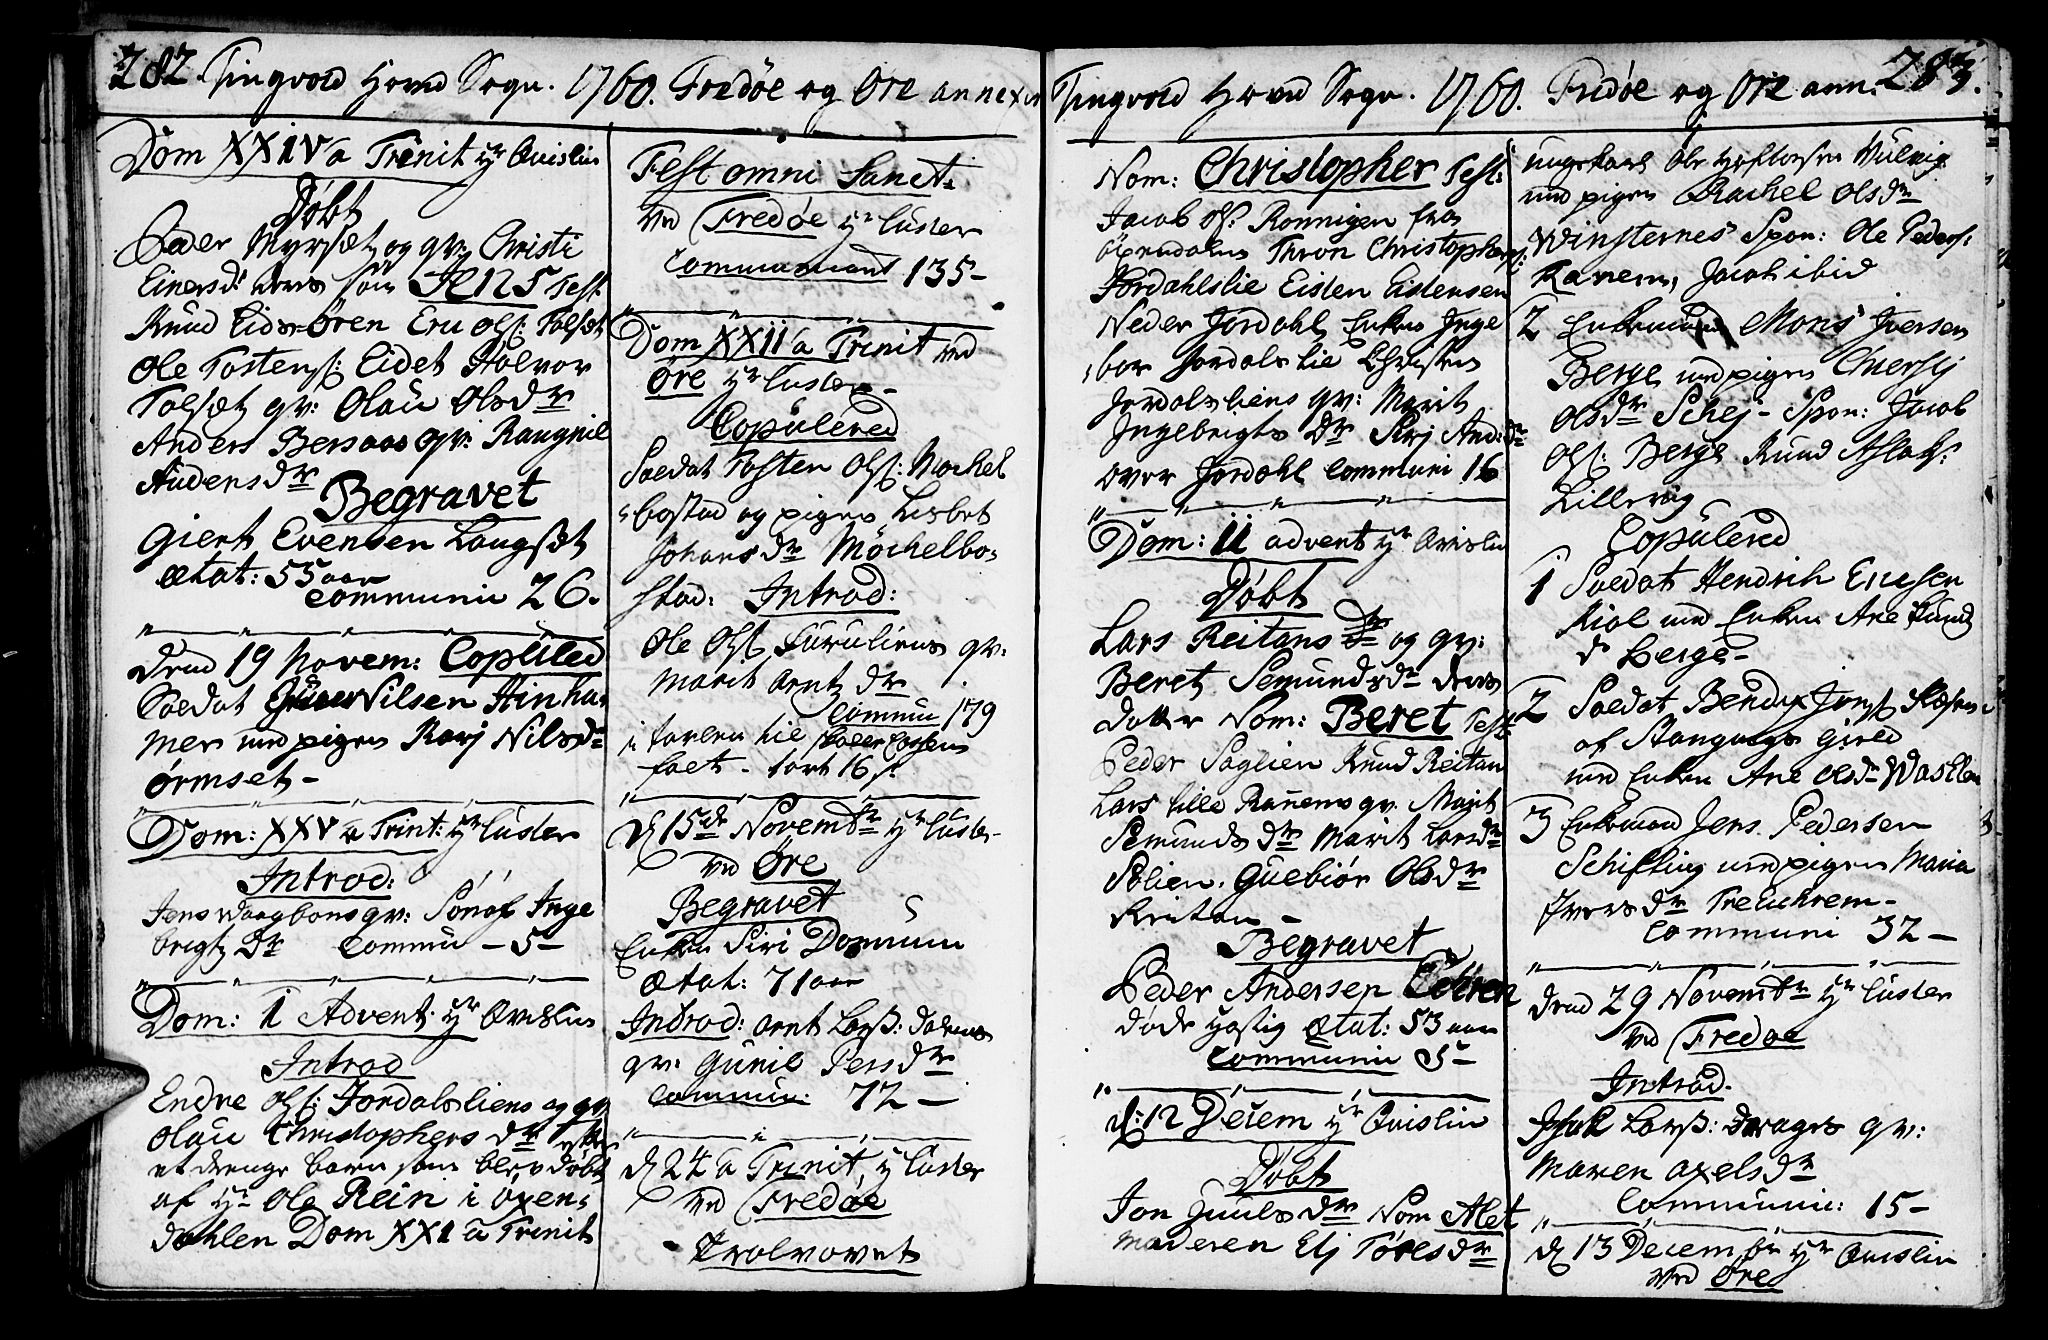 282. Tingvold Hoved Sogn. 1760. Fredøe og Øre annexer
Dom XXIV a Trinit Hr Qvislin
Døbt
Peder Myrsæt og qv: Christi
Einersdr deres søn test
Knud Eids-Øren Eru Ols: Talsæt
Ole Tostens: Eidet Halvor
Talsæt qv: Olau Olsdr
Anders Bersaas qv: Raugnil
Audensdr
Begravet
Giert Evensen Langsæt
ætat: 55 aar
communi 26.
dend 19 Novem: Copuled
Soldat Nilsen Hinha-
mer med pigen Karj Nilsdr
Ørmset -
Dom: XXV a Trinit: Hr Luster
Introd:
Jens Waagbøns qv: Inge
brigtz dr Commu - 5 -
Dom: 1 Advent Hr Qvislin
Introd
Endre Ols: Jordalsliens og qv
Olau Christophers dr efter
et drenge barn som blev døbt
af Hr Ole Rein i Øxen-
dahlen Dom XXI a Trinit
Fest omni Sanct:
ved Fredøe Hr Luster
Communicant 135 -
Dom XXII a Trinit ved
Øre Hr Luster -
Copulered
Soldat Tosten Ols: Mochel
bostad og pigen Lisbet
Johans dr Mochelbo-
stad: Introd:
Ole Ols Furuliens qv:
Marit Arntz dr
Commu 179
i tavlen til
faet - 16 s.
d 15de Novembr Hr Luster -
ved Øre
Begravet
Enken Siri Domum
Ætat: 71 aar
Introd: Arnt Larss:
qv: Gunil Persdr
Commun: 72 -
d 24 a Trinit, H Luster
ved Fredøe
Tvolvovet
Tingvold Hoved Sogn. 1760. Fredøe og Øre ann. 283.
Nom: Christopher Test:
Jacob Ols: Ronnigen fra
Øxendalen Thron Christophers:
Jordahlslie Eisten Eistensen
Neder Jordahl Enken Inge
bor Jordalslie Christen
Jordalsliens qv: Marit
Ingebrigts dr Sirj And: dr
over Jordahl communi 16
Dom: II advent Hr Qvislin
Døbt
Lars Reitans og qv:
Beret Semunds dr deres
datter Nom: Beret Test:
Peder Saglien Knud Reitan
Lars Lille Ranems qv: Marit
Semunds dr Marit Larsdr
Sølien. Guebiør Olsdr
Reitan -
Begravet
Peder Andersen
døde hastig Ætat: 53 aar
Communi 5 -
d: 12 Decem Hr Qvislin
Døbt
Jon Juuls dr Nom Alet
moderen Elj Toresdr
ungekarl Ole
med pigen Rachel Olsdr
Winsternes Spon: Ole Peders:
Ranem, Jacob ibid
2 Enkemand Mons Iversen
Berge med pigen
Olsdr Schej - Spon: Jacob
Ols: Berge Knud Aslaks:
Lillevig
Copulered
1 Soldat Hendrich Ericsen
Kiøl med Enken Ane Knud
dr Berge -
2 Soldat Bendix Jons:
af Stangvigs Gield
med Enken Ane Olsdr
3 Enkemand Jens Pedersen
Schifting med pigen Maria
Ivers dr Treechrem -
Communi 32 -
dend 29 Novembr Hr Luster
ved Fredøe
Introd.
Isak Larss: Drages qv:
Maren Axelsdr
Communi: 15 -
d 13 Decembr Hr Qvislin
ved Øre